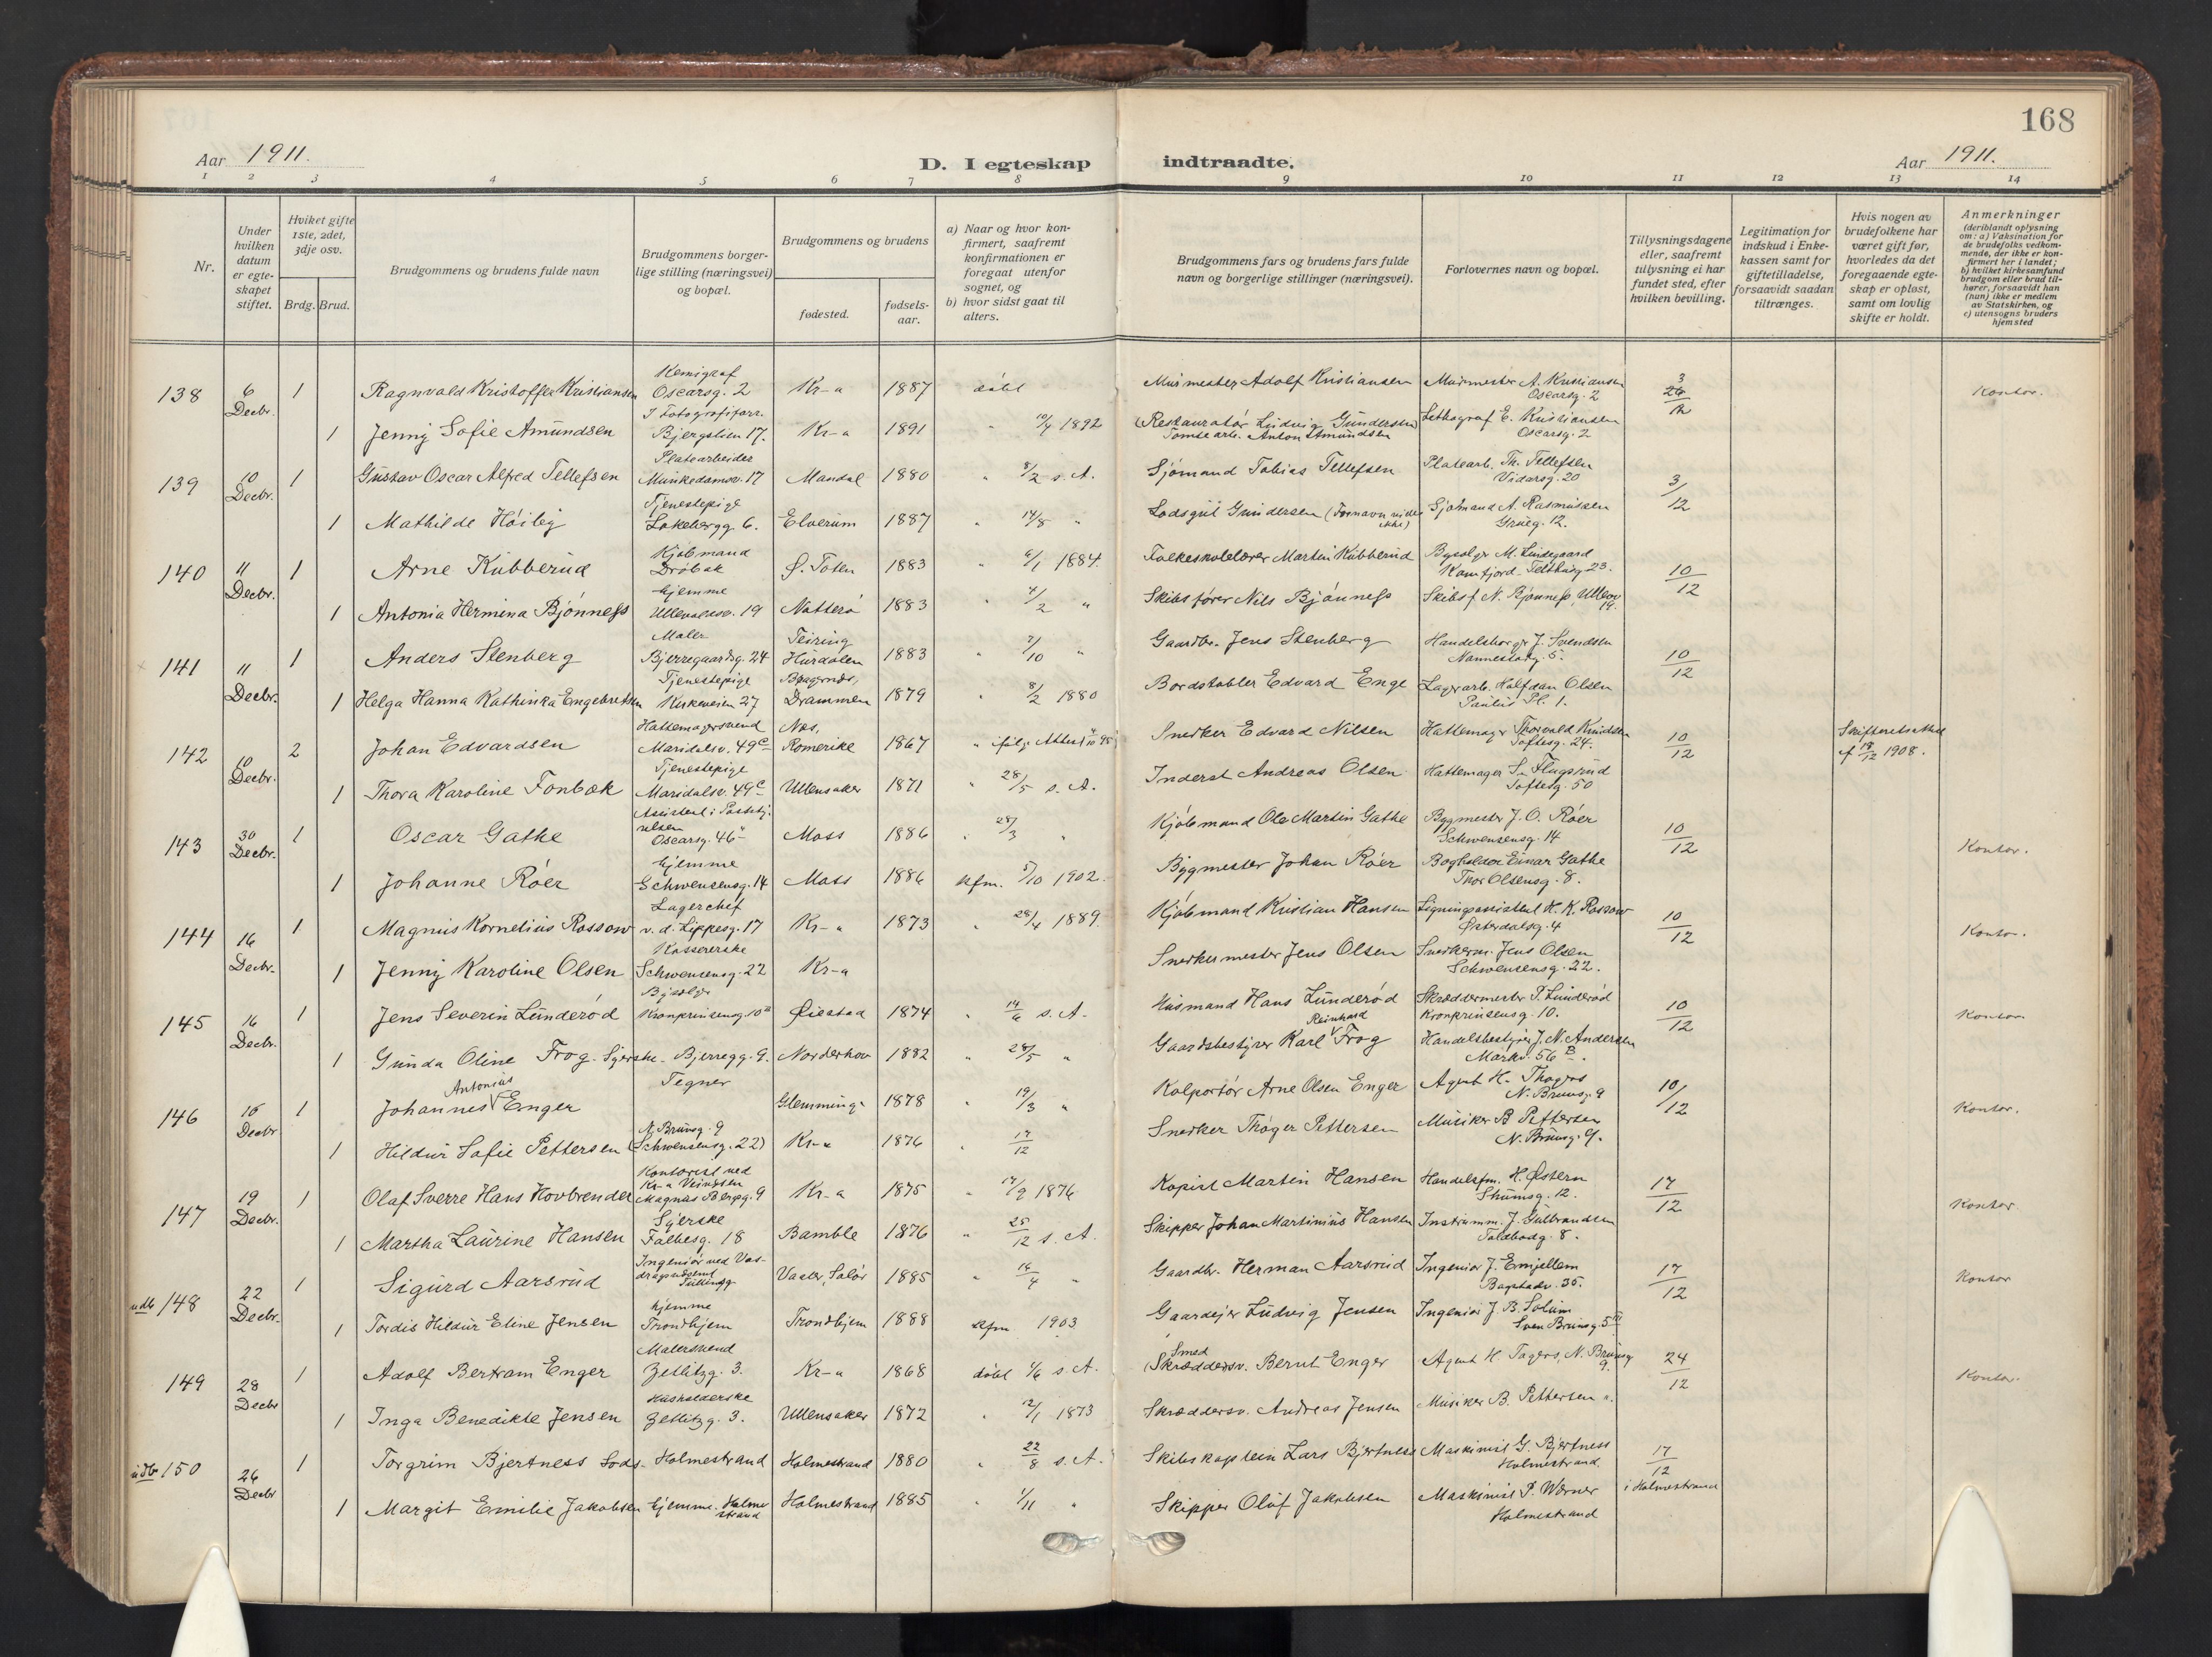 168
Aar 1911.
D. I egteskap indtraadte.
Aar 1911.
1 2 3 4 5 6 7 8 9 10 11 12 13 14
Nr.
Under hvilken datum er egteskapet stiftet.
Hviket gifte 1ste, 2det, 3dje osv.
Brdg. Brud.
Brudgommens og brudens fulde navn
Brudgommens borgerlige stilling (næringsvei) og bopæl.
Brudgommens og brudens
fødested.
fødselsaar.
a) Naar og hvor konfirmert, saafremt konfirmationen er foregaat utenfor sognet, og
b) hvor sidst gaat til alters.
Brudgommens fars og brudens fars fulde navn og borgerlige stillinger (næringsvei).
Forlovernes navn og bopæl.
Tillysningsdagene eller, saafremt tillysning ei har fundet sted, efter hvilken bevilling.
Legitimation for indskud i Enkekassen samt for giftetilladelse, forsaavidt saadan tiltrænges.
Hvis nogen av brudefolkene har været gift før, hvorledes da det foregaaende egteskap er opløst, samt om lovlig skifte er holdt.
Anmerkninger (deriblandt oplysning om: a) Vaksination for de brudefolks vedkommende, der ikke er konfirmert her i landet; b) hvilket kirkesamfund brudgom eller brud tilhører, forsaavidt han (hun) ikke er medlem av Statskirken, og c) utensogns bruders hjemsted
138 6 Decbr. 1 Ragnvald Kristoffer Kristiansen Kemigraf Oscarsg. 2 Kr-a 1887 døbt Murmester Adolf Kristiansen Murmester A. Kristiansen Oscarsg. 2 3/12 Kontor.
1 Jenny Sofie Amundsen I Fotografiforr. Bjergslien 17. Kr-a 1891 " 10/4 1892 (Restauratør Ludvig Gundersen) Tomtearb. Anton Amundsen Lithograf E. Kristiansen Oscarsg. 2
139 10 Decbr. 1 Gustav Oscar Alfred Tellefsen Platearbeider Munkedamsv. 17 Mandal 1880 " 8/2 s. A. Sjømand Tobias Tellefsen Platearb. Th. Tellefsen Vidarsg. 20 3/12
1 Mathilde Høilig Tjenestepige Lakkebergg. 6. Elverum 1887 " 14/8 " Lodsgut Gundersen (Fornavn vides ikke) Sjømand A. Rasmussen Grueg. 12.
140 11 Decbr. 1 Arne Kubberud Kjøbmand Drøbak Ø. Toten 1883 " 6/1 1884. Folkeskolelærer Martin Kubberud Byselgr M. Lindegaard Kornfjord-Telthusg 23. 10/12
1 Antonia Hermina Bjønness Hjemme Ullevoldsv. 19 Nøtterø 1883 " 4/2 " Skibsfører Nils Bjønness Skibsf. N. Bjønness, Ullevv 19.
141 11 Decbr. 1 Anders Stenberg Maler Bjerregaardsg. 24 Feiring Hurdalen 1883 " 7/10 " Gaardbr. Jens Stenberg Handelsborgr J. Svendsen Nannestadg. 5. 10/12
1 Helga Hanna Kathinka Engebretsen Tjenestepige Kirkeveien 27 Bragernes, Drammen 1879 " 8/2 1880 Bordstabler Edvard Enge Lagerarb. Halfdan Olsen Paulus Pl. 1.
142 10 Decbr. 2 Johan Edvardsen Hattemagersvend Maridalsv. 49 c Nes, Romerike 1867 " Snedker Edvard Nilsen Hattemagr Thorvald Knudsen Toftesg. 24. 10/12 Skifteretsattest af 18/12 1908.
1 Thora Karoline Fonbæk Tjenestepige Maridalsv. 49 c Ullensaker 1871 " 28/5 s. A. Inderst Andreas Olsen Hattemager S. Flugsrud Toftesg. 50
143 30 Decbr. 1 Oscar Gathe Assistent i Poststyrelsen Oscarsg. 46 Moss 1886 " 28/3 " Kjøbmand Ole Martin Gathe Bygmester J. O. Røer Schwensensg. 14 10/12 Kontor.
1 Johanne Røer Hjemme Schwensensg. 14 Moss 1886 kfm. 5/10 1902. Bygmester Johan Røer Bogholder Einar Gathe Thor Olsensg. 8.
144 16 Decbr. 1 Magnus Kornelius Rossow Lagerchef v. d. Lippesg. 17 Kr-a 1873 " 28/4 1889. Kjøbmand Kristian Hansen Ligningsassistent K. K. Rossow Østerdalsg. 4 10/12 Kontor.
1 Jenny Karoline Olsen Kassererske Schwensensg. 22 Kr-a Snedkermester Jens Olsen Snedkerm. Jens Olsen Schwensensg. 22.
145 16 Decbr. 1 Jens Severin Lunderød Bysælger Kronprinsensg. 10 III Øiestad 1874 " 14/6 s. A. Husmand Hans Lunderød Skræddermester P. Lunderød Kronprinsensg. 10. 10/12 Kontor
1 Gunda Oline Frog. Syerske. Bjerregg. 9. Norderhov 1882 " 28/5 " Gaardsbestyrer Karl Reinhard Frog Handelsbestyrer J. N. Andersen Markv. 56 B.
146 16 Decbr 1 Johannes Antonius Enger Tegner Glemminge 1878 " 19/3 " Kolportør Arne Olsen Enger Agent H. Thøgers N. Brunsg. 9 10/12 Kontor.
1 Hildur Sofie Pettersen N. Brunsg. 9 (Schwensensg. 22) Kr-a 1876 " 17/12 Snedker Thøger Pettersen Musiker B Pettersen N. Brunsg. 9.
147 19 Decbr. 1 Olaf Sverre Hans Hovbrender Kontorist ved Kr-a Veivæsen Magnus Bergsg. 9 Kr-a 1875 " 17/9 1876 Kopist Martin Hansen Handelsfm. H. Østern Stumsg. 12. 17/12 Kontor
1 Martha Laurine Hansen Syerske Falbesg. 18 Bamble 1876 " 25/12 s. A. Skipper Johan Martinius Hansen Instrumm. J. Gulbrandsen Toldbodg. 8.
udb 148 22 Decbr. 1 Sigurd Aarsrud Ingeniør ved Vasdragsvæsenet Tullinsg. Vaaler, Solør 1885 " 16/4 " Gaardbr. Herman Aarsrud Ingeniør J. Emjellem Bogstadv. 35. 17/12 Kontor
1 Tordis Hildur Eline Jensen Hjemme Trondhjem Trondhjem 1888 kfm 1903 Gaardejer Ludvig Jensen Ingeniør J. B. Solum Sven Brunsg. 5 III
149 28 Decbr 1 Adolf Bertram Enger Malersvend Zetlitzg. 3. Kr-a 1868 døbt 1/6 s. A. (Skræddersv. Smed Bernt Enger Agent H. Tøgers, N. Brunsg 9. 24/12 Kontor.
1 Inga Benedikte Jensen Husholderske Zetlitzg. 3. Ullensaker 1872 " 12/1 1873 Skræddersv. Andreas Jensen Musiker B. Pettersen ".
udb 150 26 Decbr 1 Torgrim Bjertness Lods. Holmestrand Holmestrand 1880 " 22/8 s. A. Skibskaptein Lars Bjertness Maskinist G. Bjertness Holmestrand. 17/12 i Holmestrand
1 Margit Emilie Jakobsen Hjemme. Holmestrand Holmestrand 1885 " 1/11 " Skipper Oluf Jakobsen Maskinist P. Werner Holmestrand